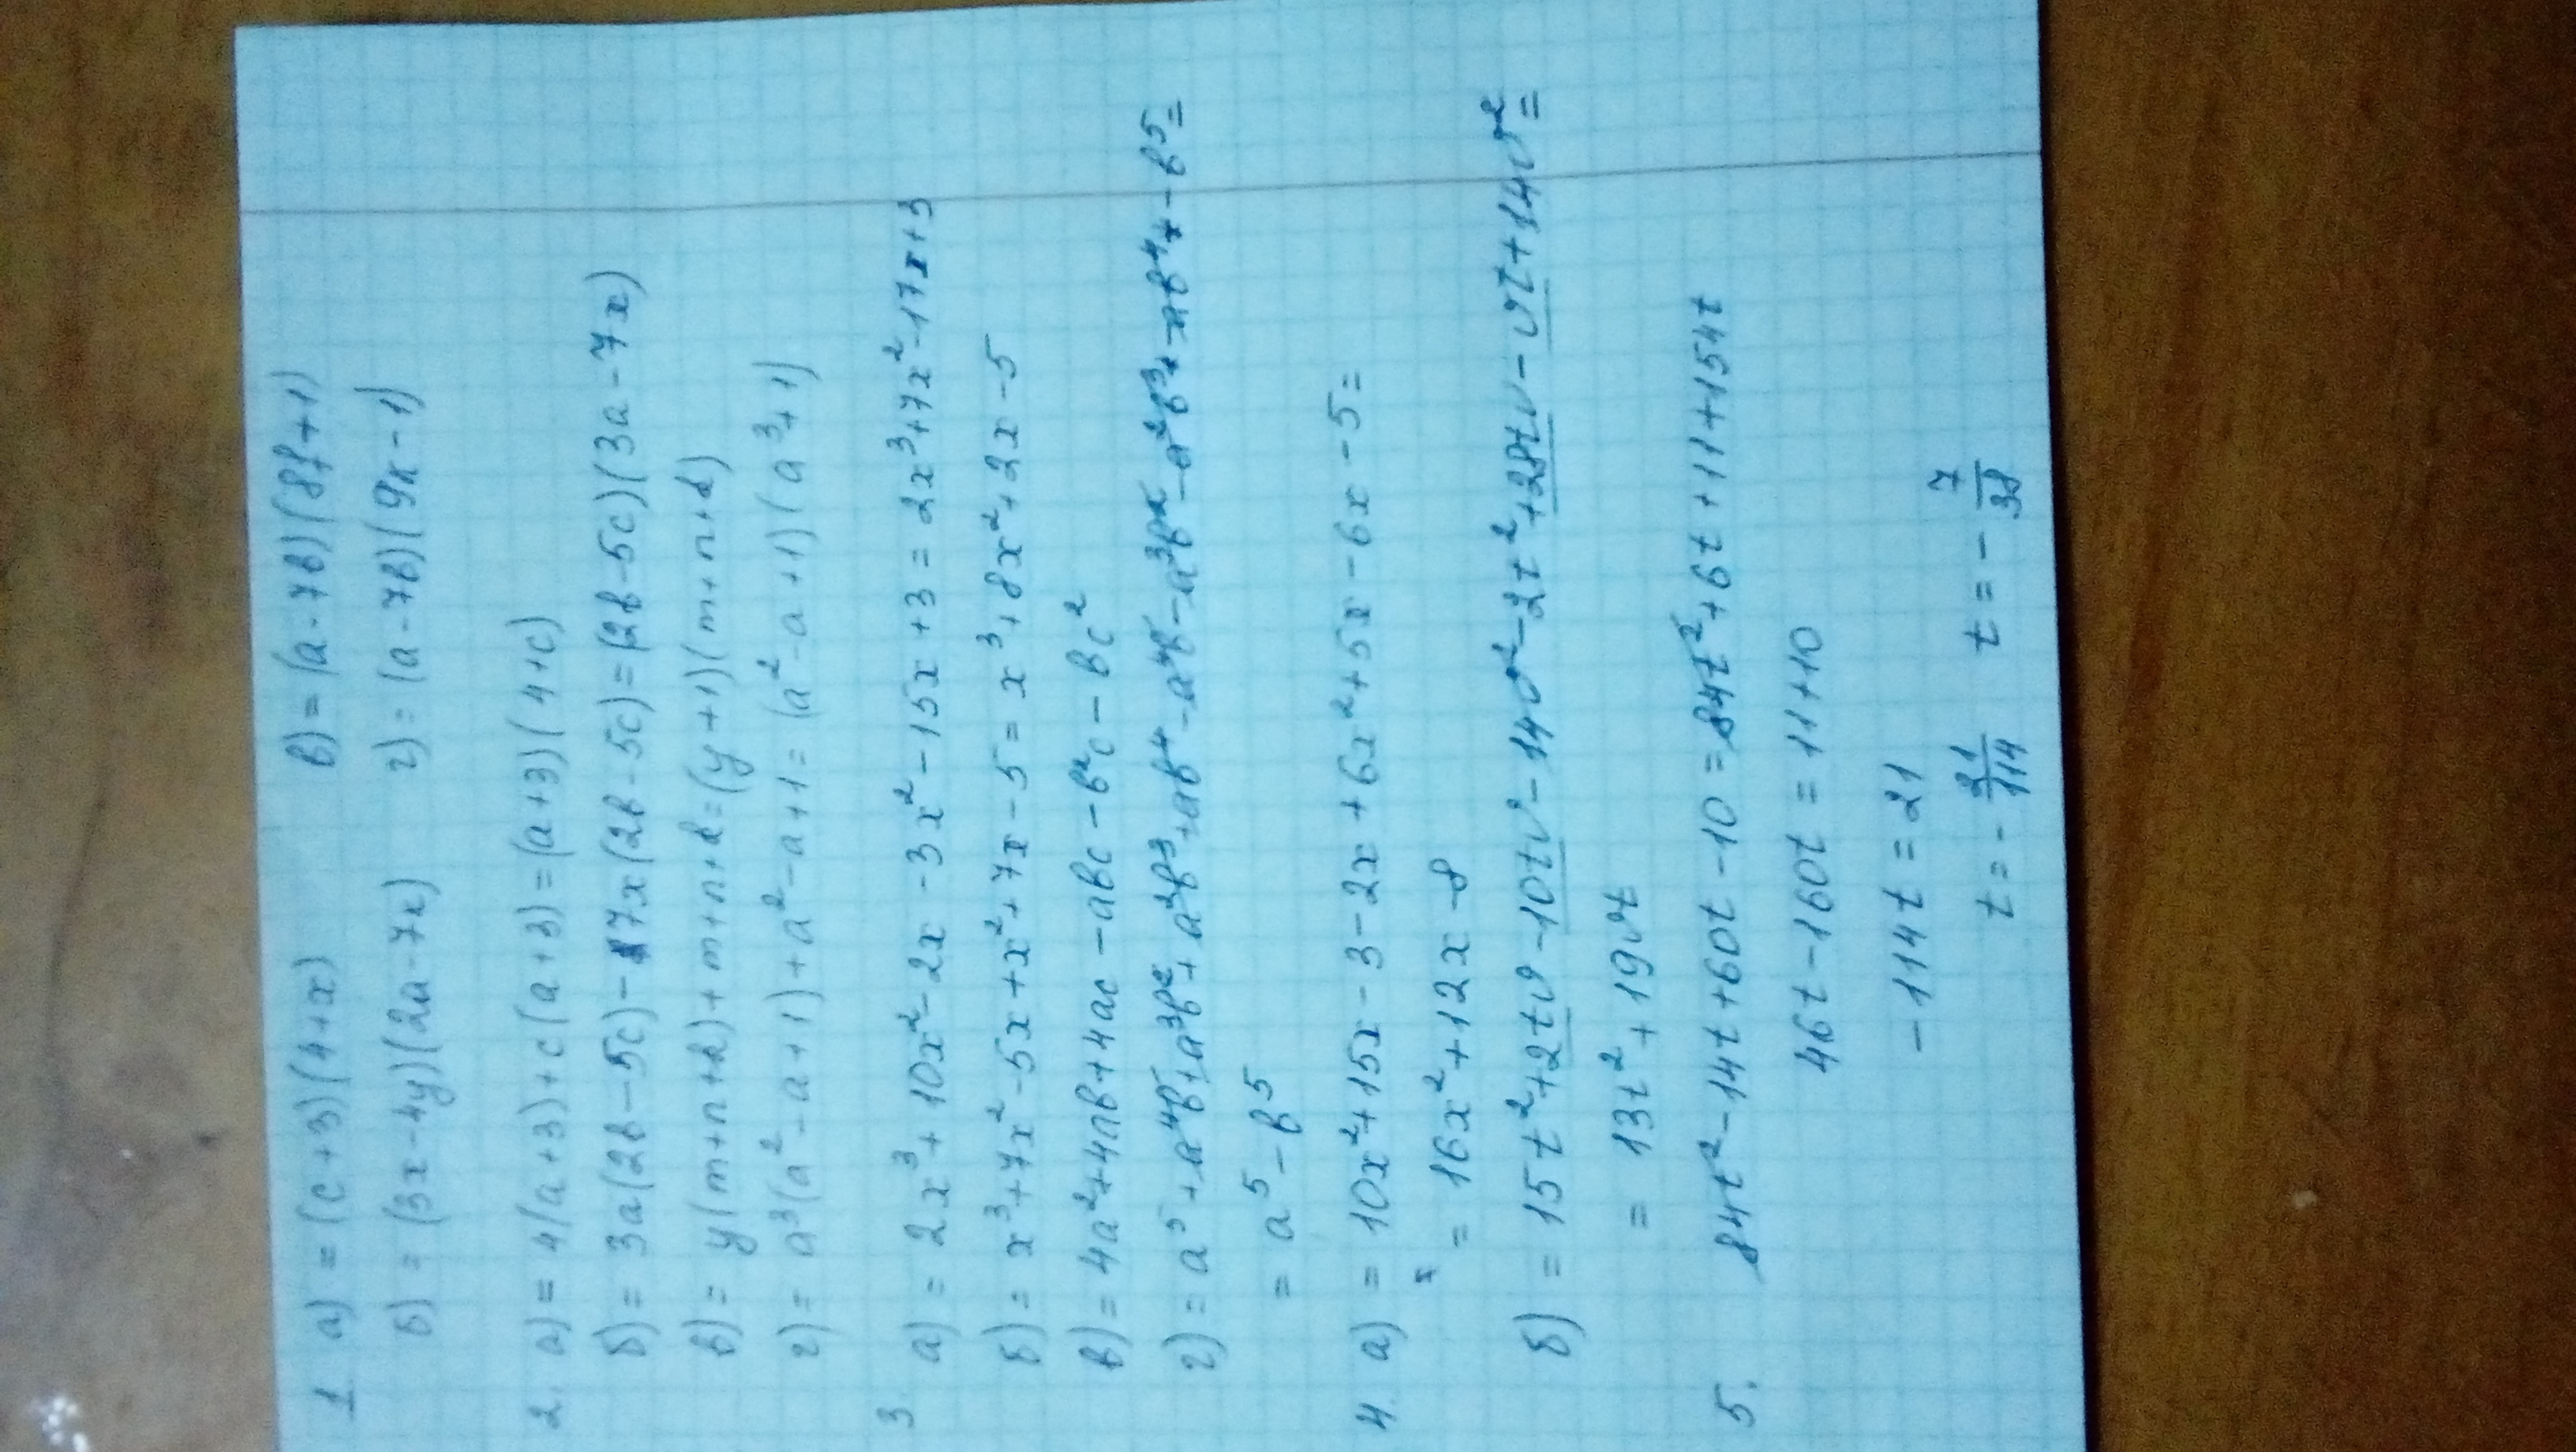 1 а) = (c+3)(4+x) в) = (a-7b)(8f+1)
б) = (3x-4y)(2a-7x) г) = (a-7b)(9x-1)
2. а) = 4(a+3)+c(a+3) = (a+3)(4+c)
б) = 3a(2b-5c)-7x(2b-5c) = (2b-5c)(3a-7x)
в) = y(m+n+k)+m+n+k = (y+1)(m+n+k)
г) = a³(a²-a+1)+a²-a+1 = (a²-a+1)(a³+1)
3. а) = 2x³+10x²-2x-3x²-15x+3 = 2x³+7x²-17x+3
б) = x³+7x²-5x+x²+7x-5 = x³+8x²+2x-5
в) = 4a²+4ab+4ac-abc-b²c-bc²
г) = a⁵+a⁴b+a³b²+a²b³+ab⁴-a⁴b-a³b²-a²b³-ab⁴-b⁵=
= a⁵-b⁵
4. а) = 10x²+15x-3-2x+6x²+5x-6x-5=
= 16x²+12x-8
б) = 15t²+2tv-10tv-14v²-2t²+28tv-vt+14v²=
= 13t²+19vt
5. 84t²-14t+60t-10=84t²+6t+11+154t
46t-160t=11+10
-114t=21
t=-21/114 t=-7/38